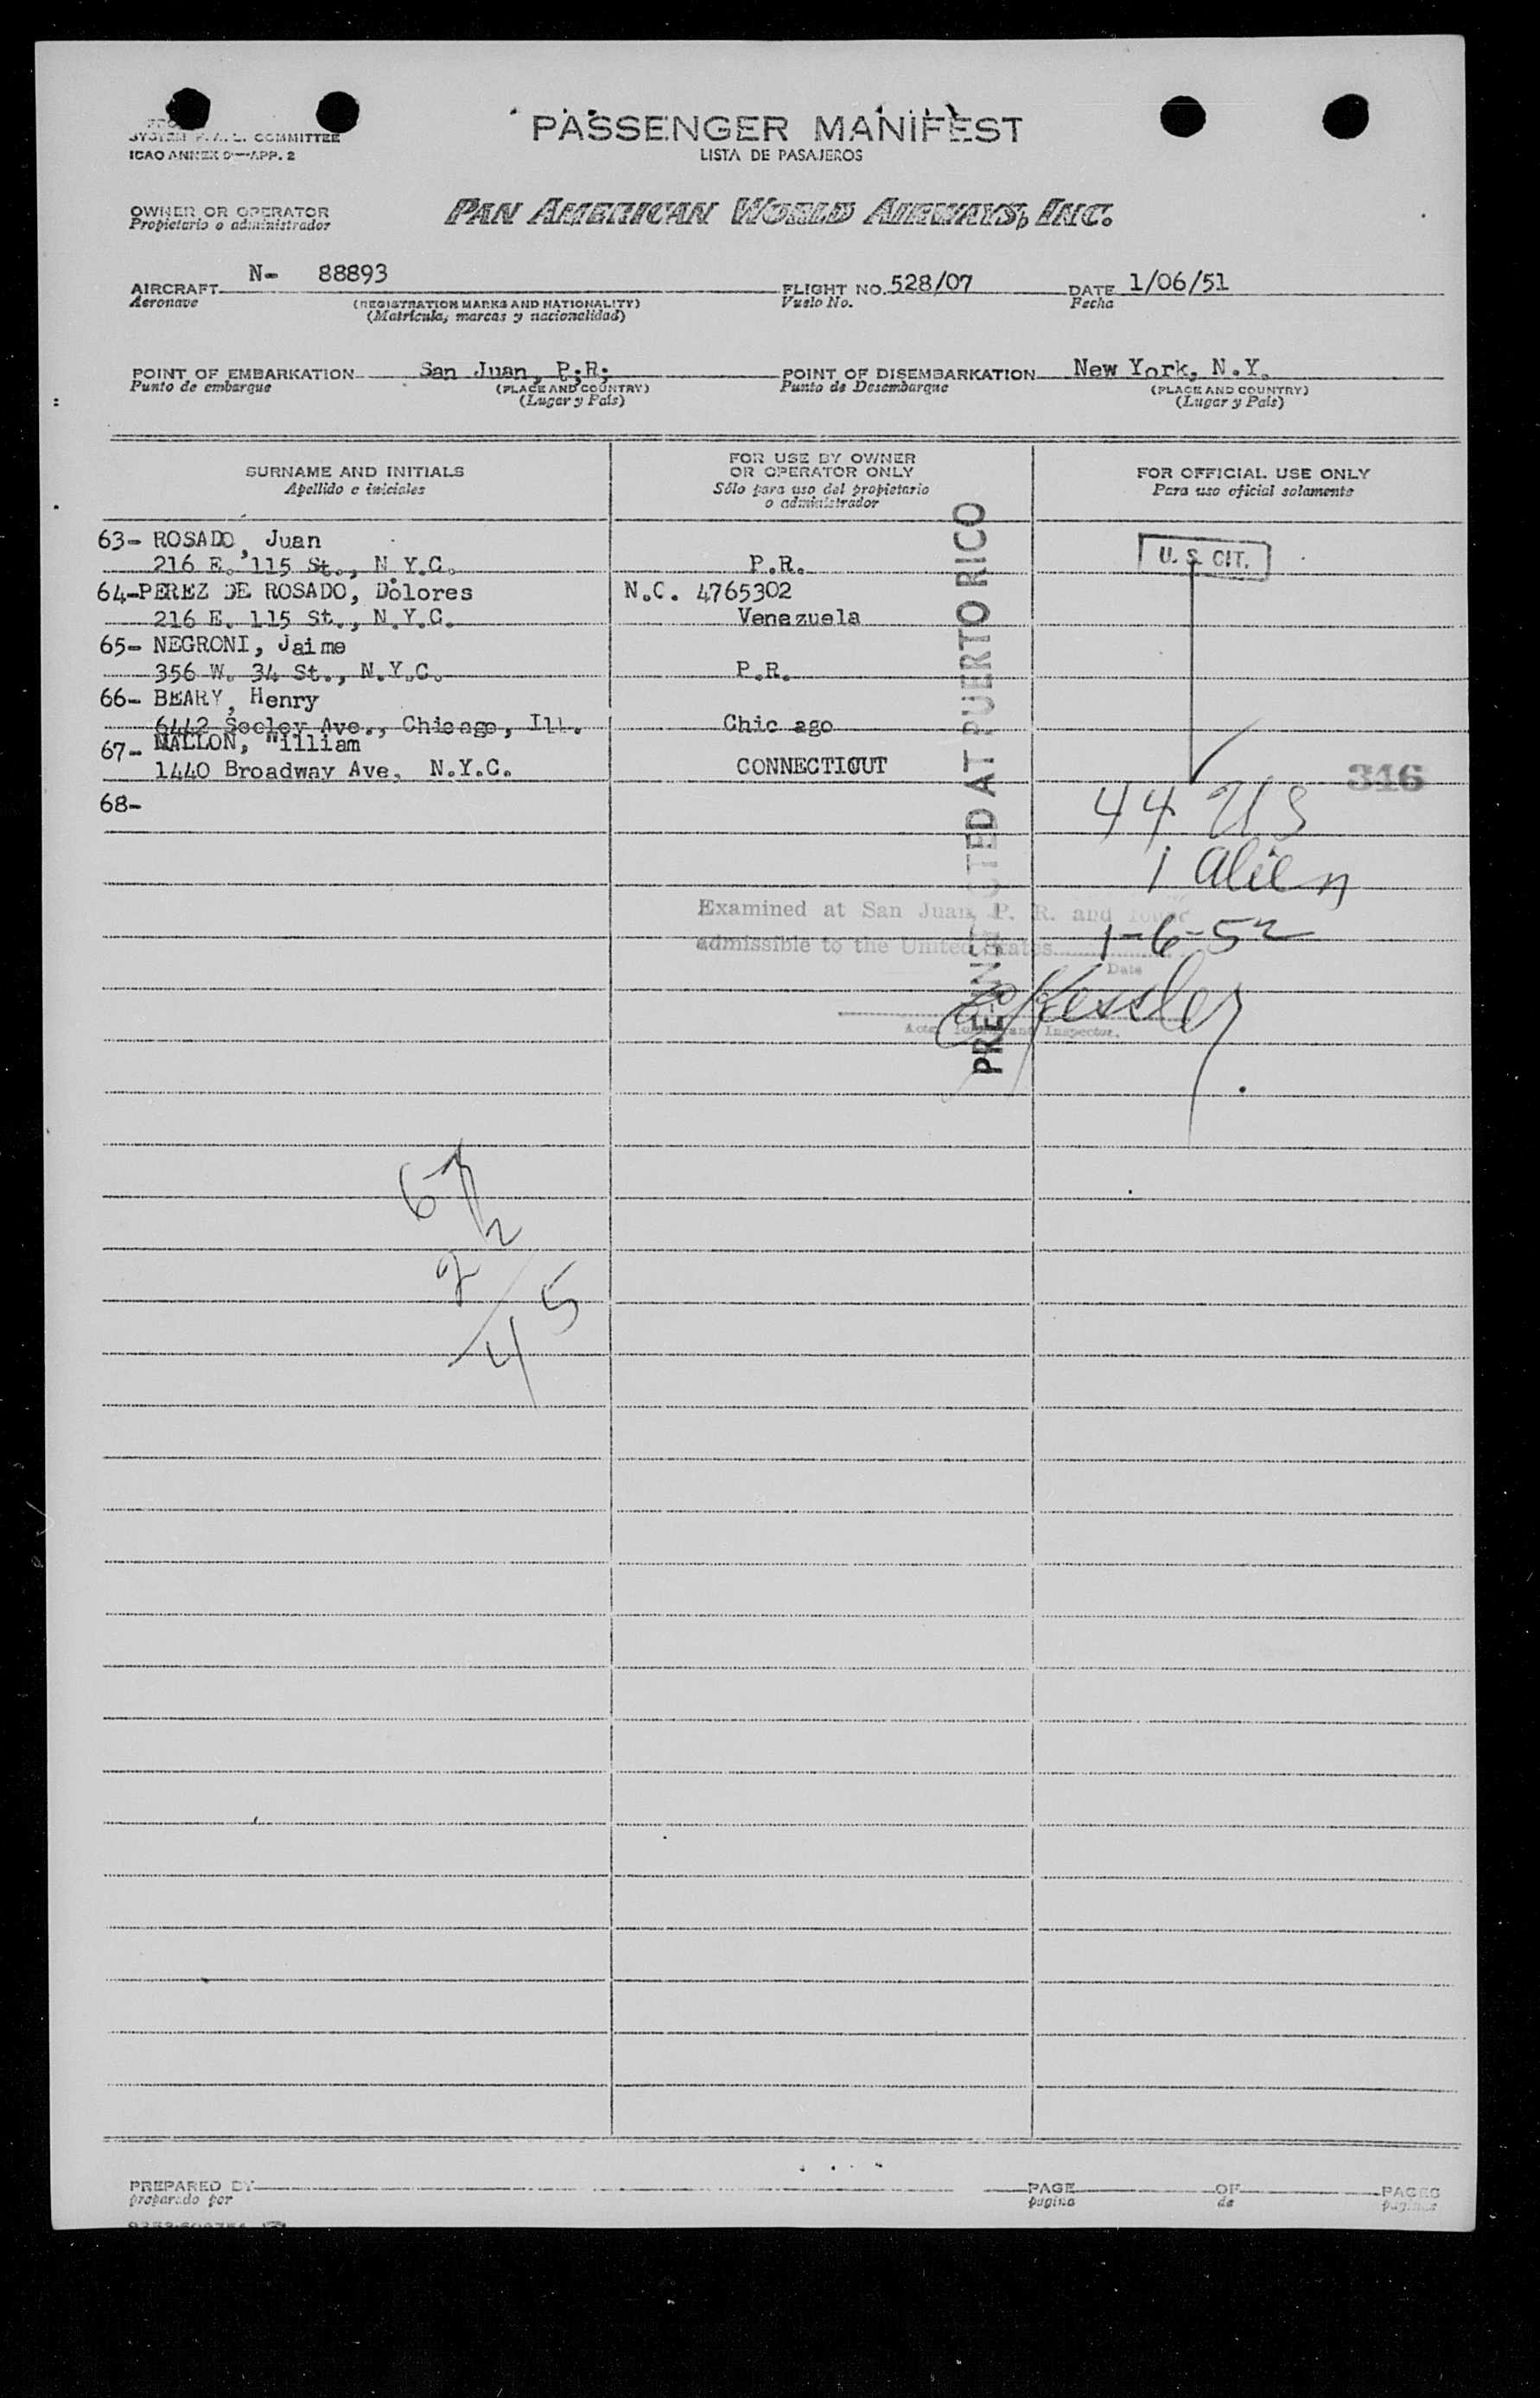 SYSTEM F.A.L. COMMITTEE
ICAO ANNEX 9—APP. 2
PASSENGER MANIFEST
LISTA DE PASAJEROS
OWNER OR OPERATOR
Propietario o administrador
PAN AMERICAN WORLD AIRWAYS, INC.
AIRCRAFT N- 88893 FLIGHT NO. 528/07 DATE 1/06/51
Aeronave (REGISTRATION MARKS AND NATIONALITY) Vuelo No. Fecha
(Matrícula, marcas y nacionalidad)
POINT OF EMBARKATION San Juan, P;R; POINT OF DISEMBARKATION New York, N.Y.
Punto de embarque (PLACE AND COUNTRY) Punto de Desembarque (PLACE AND COUNTRY)
(Lugar y País) (Lugar y País)
SURNAME AND INITIALS
Apellido e iniciales
FOR USE BY OWNER
OR OPERATOR ONLY
Sólo para uso del propietario
o administrador
FOR OFFICIAL USE ONLY
Para uso oficial solamente
63- ROSADO, Juan
216 E. 115 St., N.Y.C. P.R. U. S. CIT.
64-PEREZ DE ROSADO, Dolores N.C. 4765302
216 E. 115 St., N.Y.C. Venezuela
65- NEGRONI, Jaime
356 W. 34 St., N.Y.C. P.R.
66- BEARY, Henry
6442 Seeley Ave., Chicago, Ill. Chic ago
67- MALLON, William
1440 Broadway Ave, N.Y.C. CONNECTICUT
346
68-
44 US
1 alien
PRE-INSPECTED AT PUERTO RICO
Examined at San Juan, P. R. and found
admissible to the United States 1-6-52
Date
Kessler
Inspector.
67
2
2
45
PREPARED BY PAGE OF PAGES
preparado por pagina de paginas